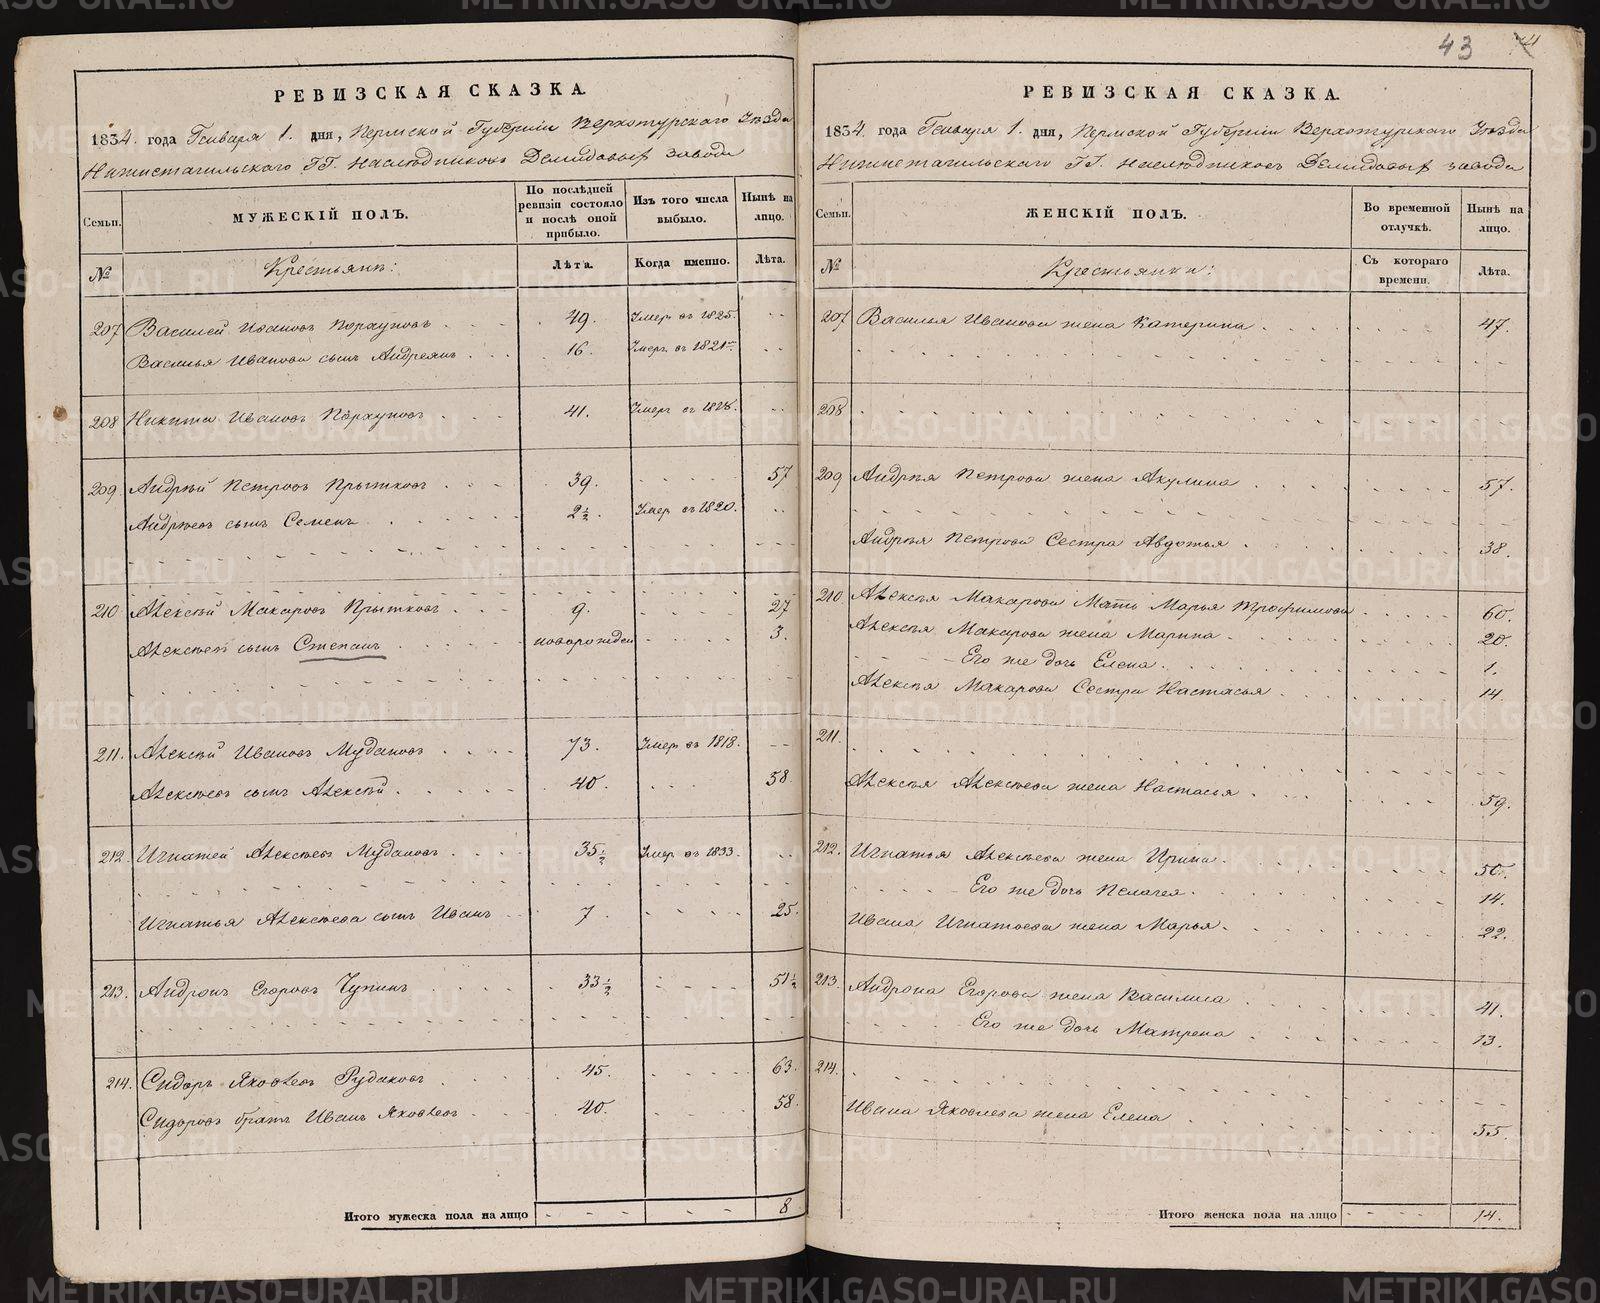 43
РЕВИЗСКАЯ СКАЗКА.
1834. года Генваря 1. дня, Пермской Губернии Верхотурскаго Уѣзда
Нижнетагильскаго ГГ. Наслѣдниковъ Демидовыхъ завода
Семьи. МУЖЕСКІЙ ПОЛЪ. По послѣдней ревизіи состояло и послѣ оной прибыло. Изъ того числа выбыло. Нынѣ на лицо.
№ Крестьянъ: Лѣта. Когда именно. Лѣта.
207 Василей Ивановъ 49. Умеръ въ 1825.
Василья Иванова сынъ Андреянъ 16. Умеръ въ 1821
208 Никита Ивановъ 41. Умеръ въ 1828.
209 Андрѣй Петровъ Прытковъ 39. 57
Андрѣевъ сынъ Семенъ 2½. Умеръ въ 1820.
210 Алексѣй Макаровъ Прытковъ 9. 27
Алексѣевъ сынъ Степанъ новорожден 3.
211. Алексѣй Ивановъ Мудановъ 73. Умеръ въ 1818.
Алексѣевъ сынъ Алексѣй 40. 58
212. Игнатей Алексѣевъ Мудановъ 35½ Умеръ въ 1833.
Игнатья Алексѣева сынъ Иванъ 7. 25.
213. Андронъ Егоровъ Чупинъ 33½ 51½
214. Сидоръ Яковлевъ Рудаковъ 45. 63.
Сидоровъ братъ Иванъ Яковлевъ 40. 58.
Итого мужеска пола на лицо 8
РЕВИЗСКАЯ СКАЗКА.
1834. года Генваря 1. дня, Пермской Губерніи Верхотурскаго Уѣзда
Нижнетагильскаго ГГ. Наслѣдниковъ Демидовыхъ завода
Семьи. ЖЕНСКІЙ ПОЛЪ. Во временной отлучкѣ. Нынѣ на лицо.
№ Крестьянки: Съ котораго времени. Лѣта.
207 Василья Иванова жена Катерина 47.
208
209 Андрѣя Петрова жена Акулина 57.
Андрѣя Петрова Сестра Авдотья 38.
210 Алексѣя Макарова Мать Марья Трофимова 60.
Алексѣя Макарова жена Марина 20.
Его же дочь Елена. 1.
Алексѣя Макарова Сестра Настасья 14.
211.
Алексѣя Алексѣева жена Настасья 59.
212. Игнатья Алексѣева жена Ирина. 50.
Его же дочь Пелагея. 14.
Ивана Игнатьева жена Марья. 22.
213. Андрона Егорова жена Василиса 41.
Его же дочь Матрена 13.
214.
Ивана Яковлева жена Елена 55.
Итого женска пола на лицо 14.
METRIKI.GASO-URAL.RU